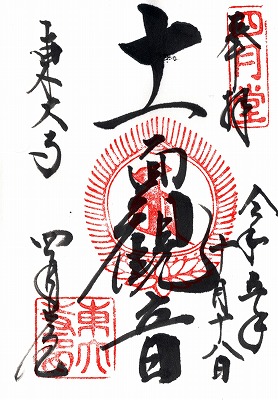 四月堂
奉拝
令和五年
十月十八日
十一面観音
東大寺
四月堂